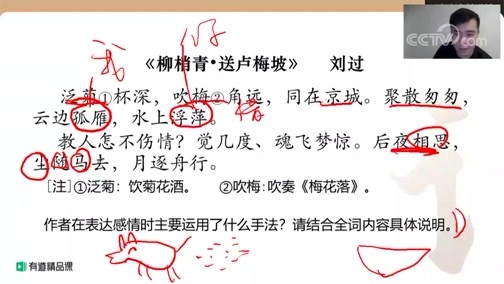 CCTV.com
《柳梢青•送卢梅坡》 刘过
我 好
泛菊①杯深，吹梅②角远，同在京城。聚散匆匆，
云边孤雁，水上浮萍。情
教人怎不伤情？觉几度、魂飞梦惊。后夜相思，
尘随马去，月逐舟行。
[注]①泛菊：饮菊花酒。 ②吹梅：吹奏《梅花落》。
作者在表达感情时主要运用了什么手法？请结合全词内容具体说明。
有道精品课